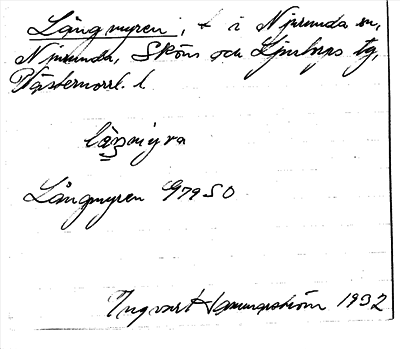 Långmyren, t i Njurunda sn,
Njurunda, Sköns och Ljustorps tg,
Västernorrl. l.
Långmyren 979 SO
Ingvart Hammarström 1932